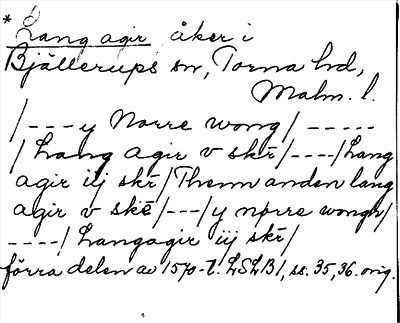 * Lang agir åker i
Bjällerups sn, Torna hd,
Malm. l.
/ --- y Norre wong / -----
/ Lang agir v skr̄ / ---- / Lang
agir iij skr̄ / Them anden lang
agir v skr̄ / --- / y nørre wongh /
---- / Langagir iij skr̄ /
förra delen av 1570-t. LSLB1, ss. 35, 36. orig.